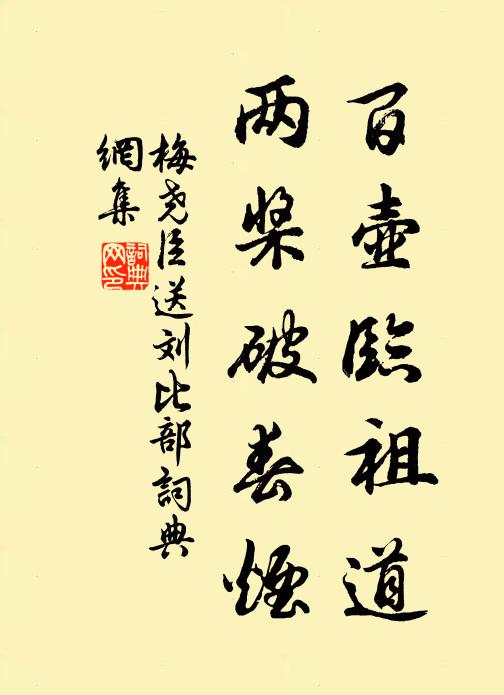 百壶臨祖道
两桨破春煙
梅尧臣送刘比部詞典
網集
詞典
网印